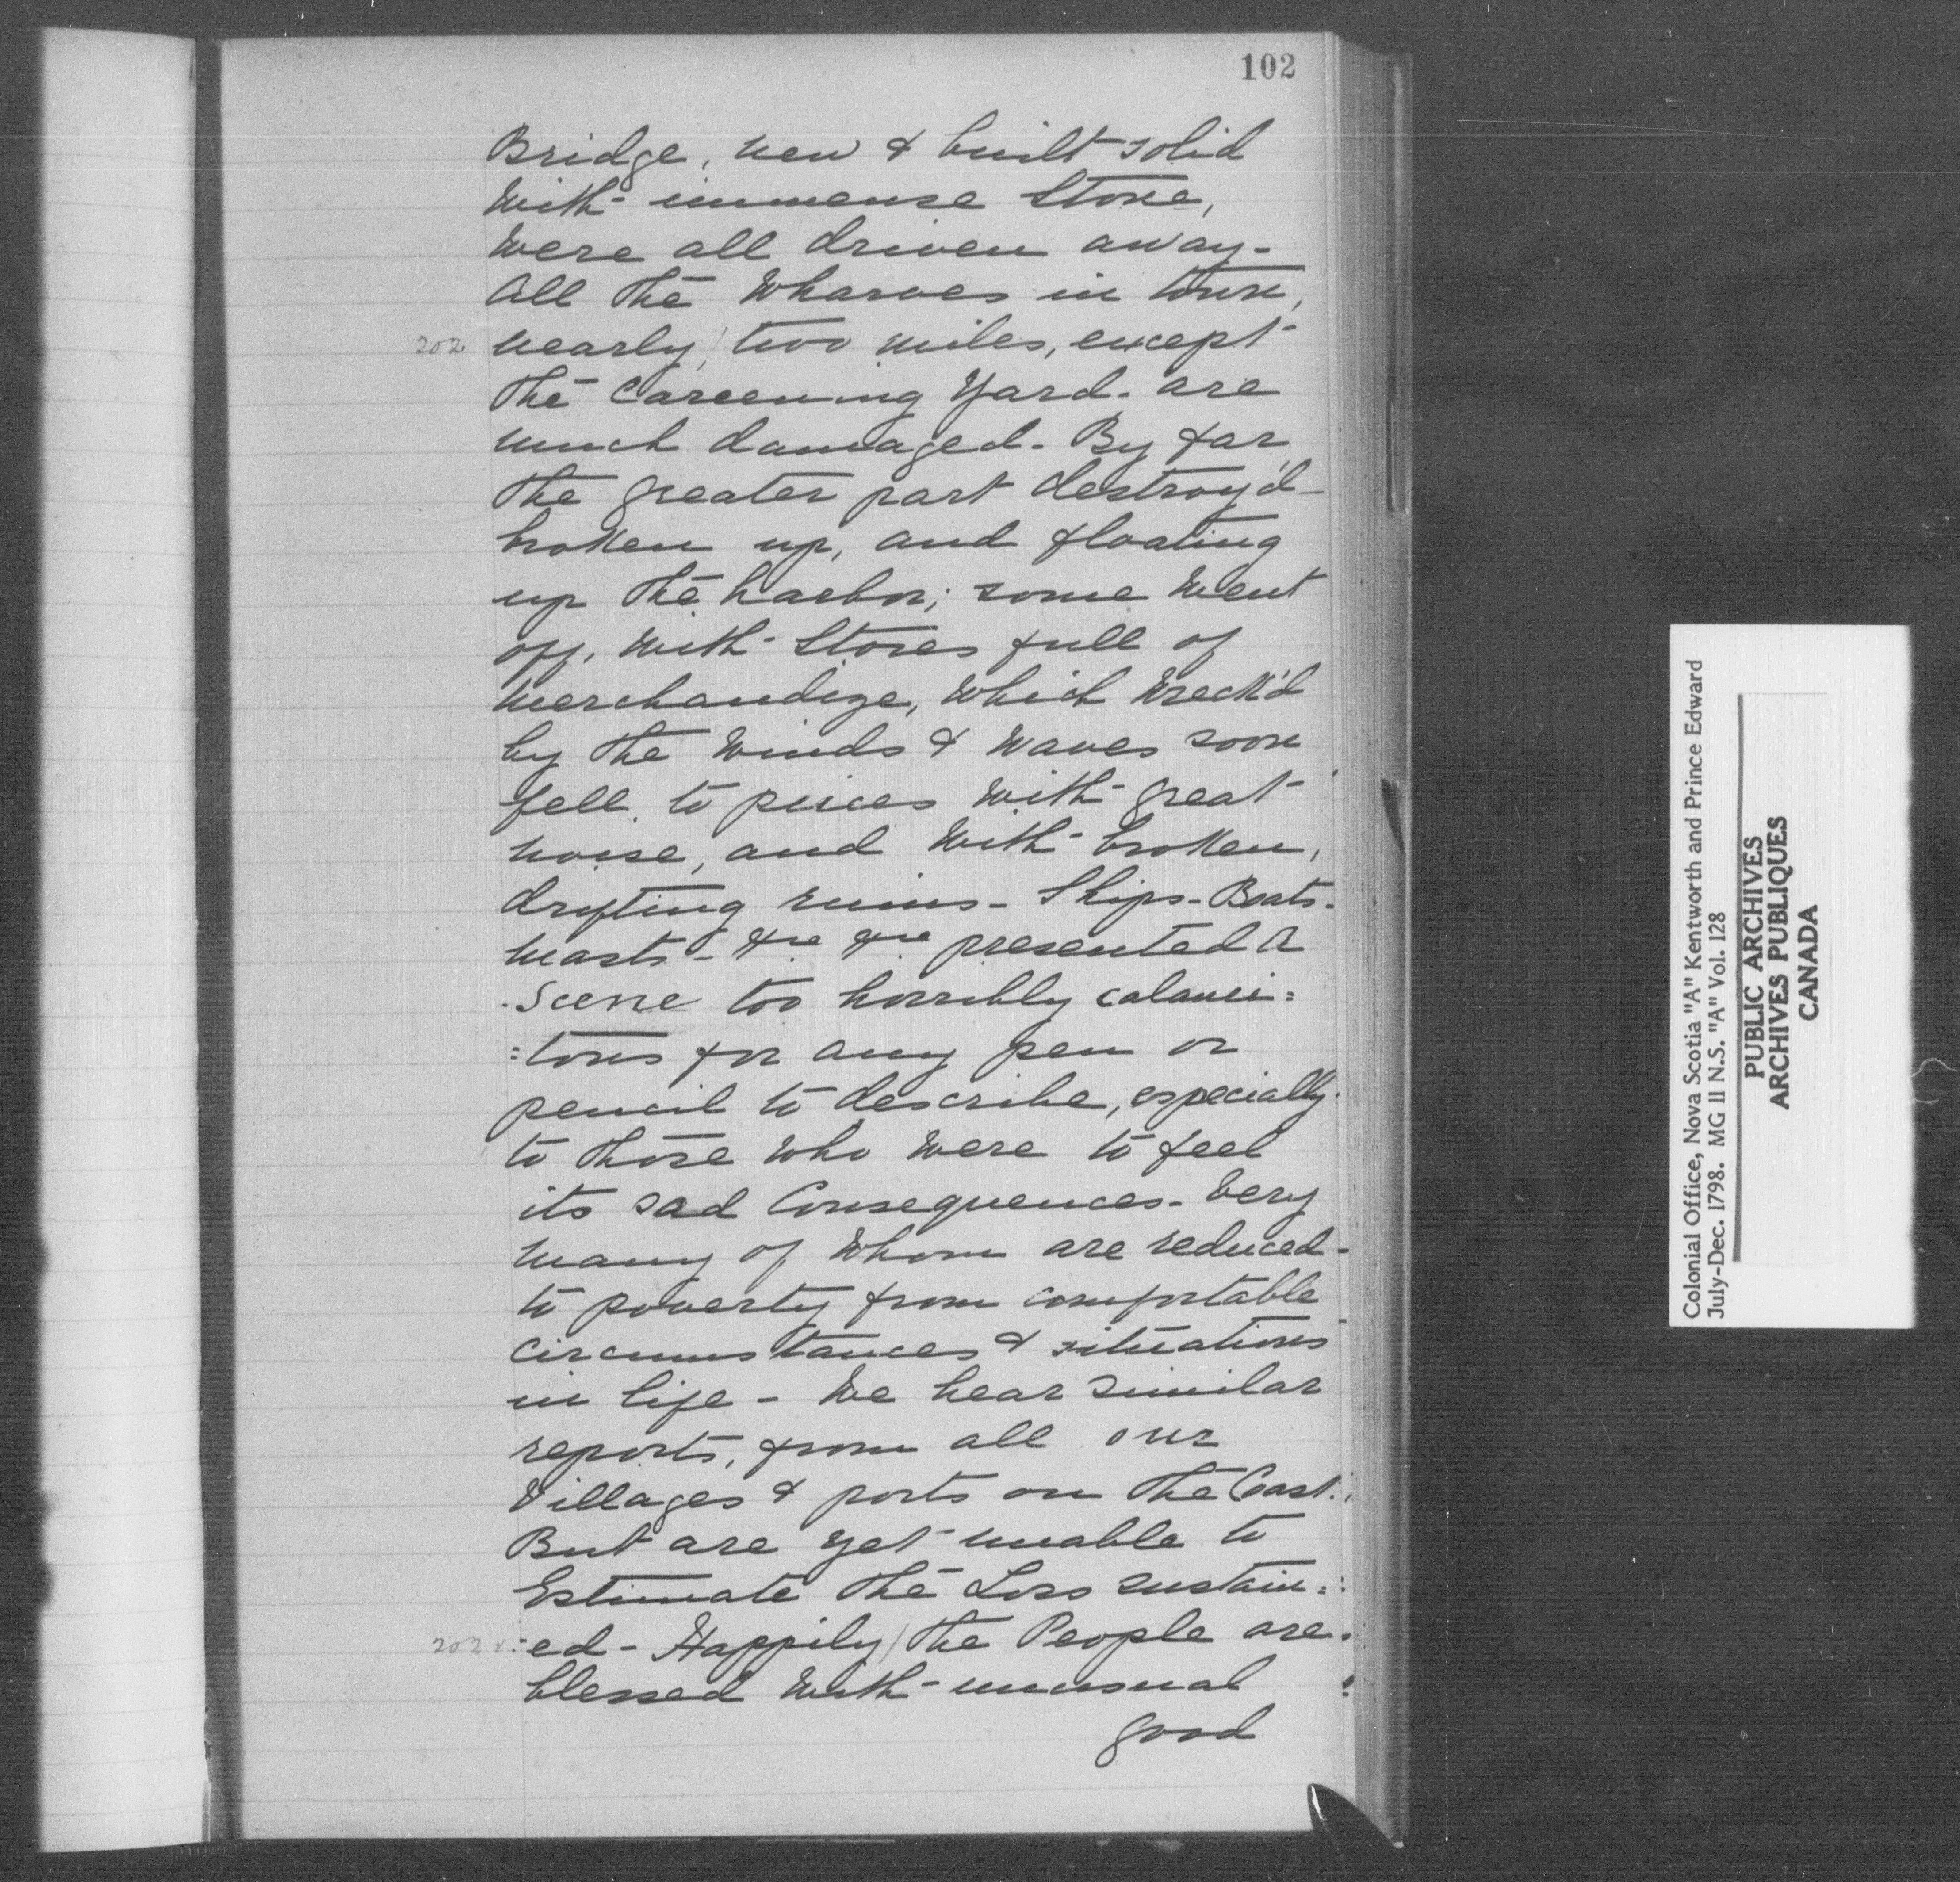 102
Bridge, new & built solid
With immense Stone,
Were all driven away-
All the Wharves in town,
202 nearly / two miles, except
the Careening Yard. are
much damaged. By far
the greater part destroy'd-
broken up, and floating
up the harbor; some Went
off, With Stores full of
Merchandize, Which Wreck'd
by the Winds & Waves soon
fell to pieces With great
noise, and With broken,
drifting ruins- Ships- Boats-
Masts- &ca &ca presented a
Scene too horribly calami=
=tous for any pen or
pencil to describe, especially
to those Who Were to feel
its sad Consequences- Very
many of Whom are reduced-
to poverty from comfortable
circumstances & situations
in life - We hear similar
reports, from all our
Villages & ports on the Coast.
But are yet unable to
Estimate the Loss sustain=
202 v. =ed- Happily / the People are
blessed With unusual
good
Colonial Office, Nova Scotia "A" Kentworth and Prince Edward
July-Dec. 1798. MG 11 N.S. "A" Vol. 128
PUBLIC ARCHIVES
ARCHIVES PUBLIQUES
CANADA